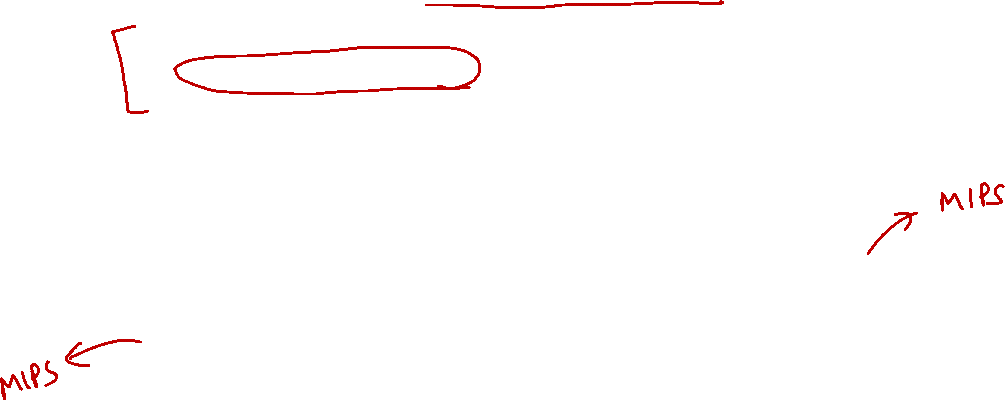 MIPS
MIPS